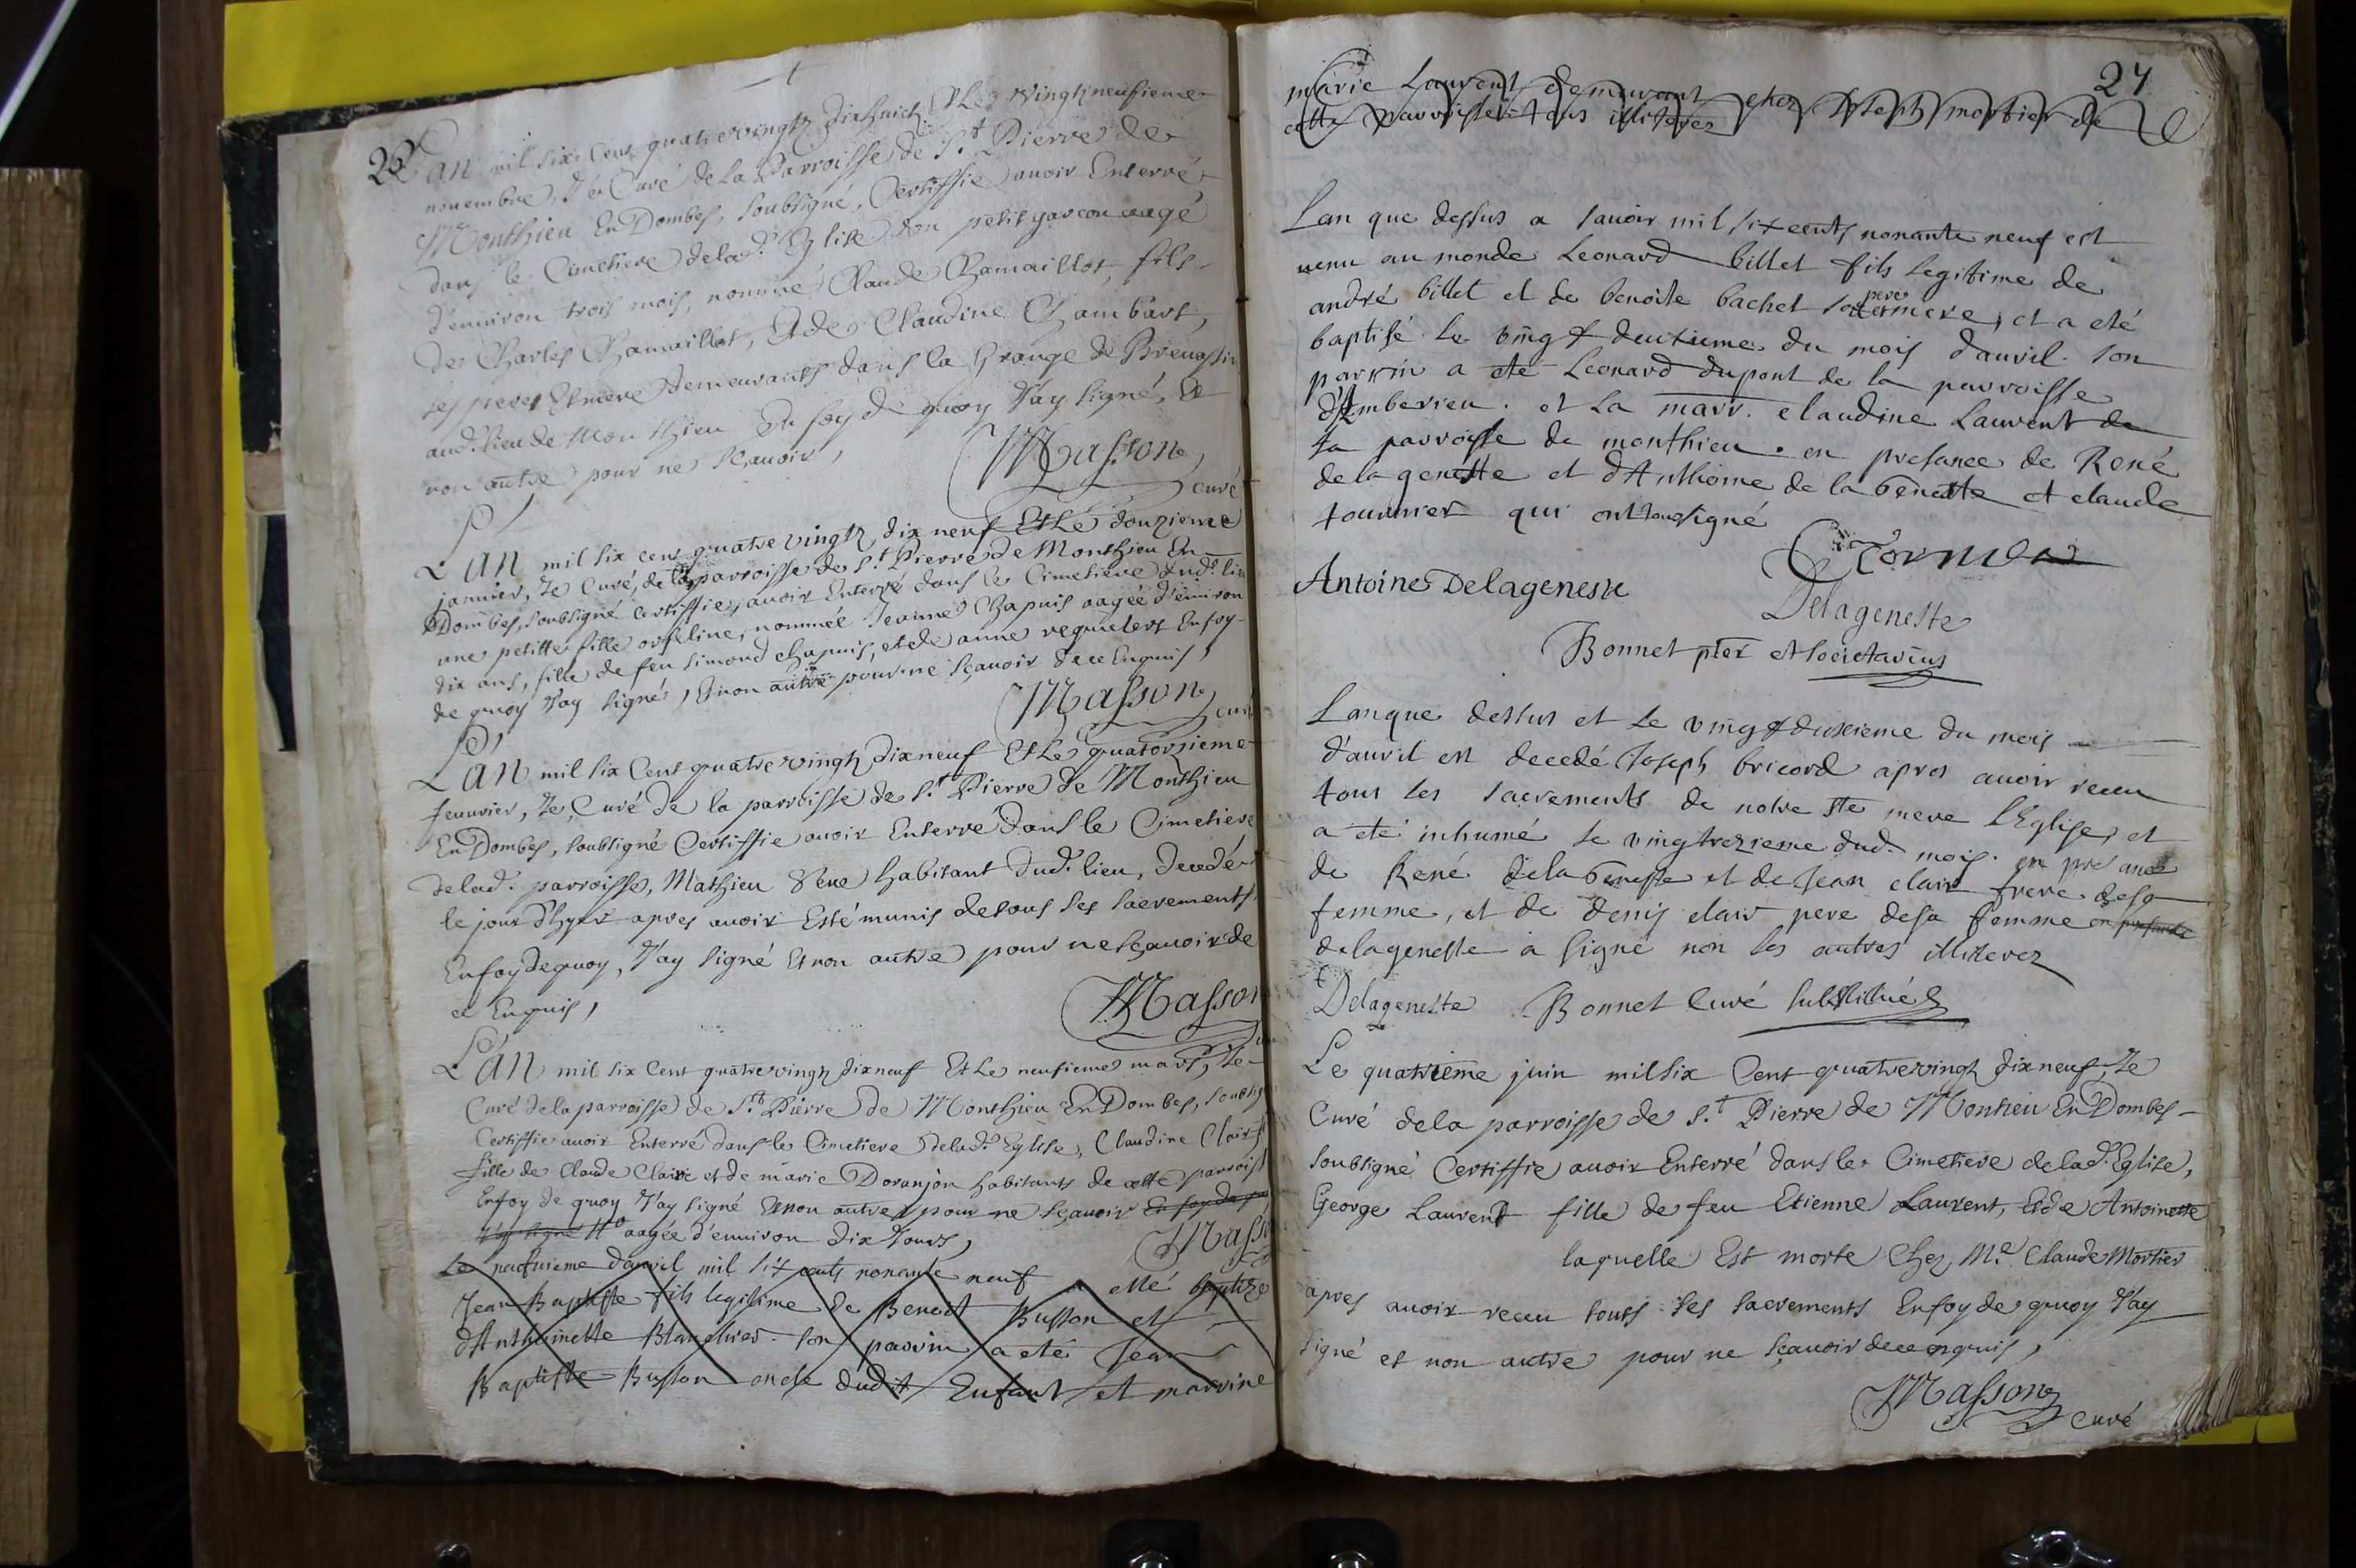 L'an mil six cent quatre vingtz dix huict Et Le vingtneufieme
novembre, Je Curé de La Parroisse de St Pierre de
Monthieu En Dombes, soubsigné, Certiffie avoir Enterré
dans le Cimetiere de lad. Eglise un petit garcon aagé
d'environ trois mois, nommé Claude Chamaillot, fils
de Charles Chamaillot, Et de Claudine Chambart,
ses peres Et mere demeurants dans la Grange de
aud. lieu de Monthieu En foy de quoy J'ay signé, Et
non autre pour ne sçavoir,
Masson
curé
L'an mil six cent quatre vingtz dix neuf Et Le douzieme
janvier, Je Curé, de la parroisse de St Pierre de Monthieu En
Dombes, soubsigné certiffie, avoir Enterré dans le Cimetiere dud. lieu
une petitte fille orfeline, nommée Jeanne Chapuis aagée d'environ
dix ans, fille de feu Simond chapuis, et de anne En foy
de quoy J'ay signé, Et non autre pour ne sçavoir de ce Enquis,
Masson
curé
L'an mil six Cent quatre vingtz dix neuf Et Le quatorzieme
feuvrier, Je, Curé de la parroisse de St Pierre de Monthieu
En Dombes, soubsigné Certiffie avoir Enterré dans le Cimetiere
de lad. parroisse, Mathieu habitant dud. lieu, decedé
le jour d'hyer apres avoir Esté munis de tous ses sacrements
En foy de quoy, J'ay signé Et non autre pour ne sçavoir de
ce Enquis,
Masson
L'an mil six Cent quatre vingtz dix neuf Et Le neufieme mars, Je
Curé de la parroisse de St Pierre de Monthieu En Dombes, soubsig
Certiffie avoir Enterré dans le Cimetiere de lad. Eglise, Claudine Clair
fille de Claude Claire et de marie Doranjon habitants de cette parroisse
En foy de quoy J'ay signé Et non autre pour ne sçavoir En foy de
J'ay signé aagée d'environ dix Jours,
Masson
Le neufvieme d'avril mil six cents nonante neuf a esté baptizé
Jean Baptiste fils legitime de Benoit Busson et
d'Anthoinette Blanchet. son parrin a eté Jean
Baptiste Busson oncle dudit Enfant et marrine
24
marie Laurent demeurant chez Joseph mortier de
cette parroisse tous illiterez
Lan que dessus a savoir mil six cents nonante neuf est
venu au monde Leonard billet fils legitime de
andré billet et de benoite bachet pere mere, et a eté
baptisé le vingt deuxieme du mois d'avril. son
parrin a eté Leonard dupont de la parroisse
d'Amberieu. et La marr. claudine Laurent de
la parroisse de monthieu. en presance de René
de la geneste et d'Anthoine de la Geneste et claude
tournier qui ont sousigné
Tornier
Antoine Delageneste
Delageneste
Bonnet pter et societarius
Lan que dessus et le vingt deuxieme du mois
d'avril est decedé Joseph bricord apres avoir receu
tous les sacrements de notre ste mere L'Eglise, et
a eté inhumé le vingtrezieme dud. mois. en presance
de René dela Geneste et de Jean clair frere de sa
femme, et de denis clair pere de sa femme en presance
delageneste a signé non les autres illiterez
Delageneste Bonnet Curé substitué
Le quatrième juin mil six Cent quatre vingtz dix neuf, Je
Curé de la parroisse de St Pierre de Montieu En Dombes
soubsigné Certiffie avoir Enterré dans le Cimetiere de lad. Eglise,
George Laurent fille de feu Etienne Laurent, Et de Antoinette
laquelle Est morte Chez Me Claude Mortier
apres avoir receu touts ses sacrements En foy de quoy J'ay
signé et non autre pour ne sçavoir de ce enquis,
Masson
curé